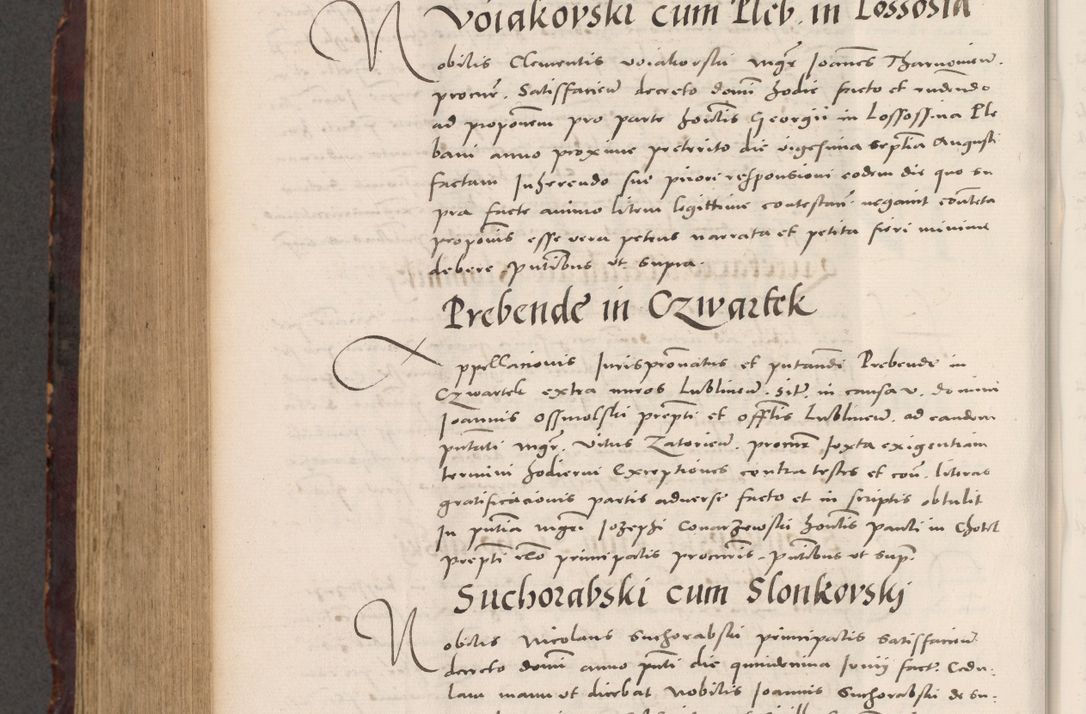 Voiakovski cum Pleb. in Lossosia
Nobilis Clementis voiakovski mgr Joannes Tharnovien.
procur. Satisfaciend decreto domi hodie facto et
ad proponem pro parte honlis Georgii in Lossossina Ple
bani anno proxime preterito die vigesima septia Augusti
factam Inherendo sue priori responsioni eodem die quo su
pra facte animo litem legittime contestan negavit contenta
proponis esse vera petens narrata et petita fieri minime
debere pntibus ut supra.
Prebende in Czwartek
Appellacionis Jurispronatus et Prebende in
Czwartek extra muros Lublinen. sit. in causa v. domini
Joannis Ossmolski prepti et offtis Lublinen. ad eandem
pntati mgr. vitus Zatorien. procur Juxta exigentiam
termini hodierni Exceptiones contra testes et con. literas
gratificacionis partis adverse facto et in scriptis obtulit
In pntia mgri Jozephi Conarzewski honlis pauli in Chotel
prepti principalis procuris. pntibus ut sup.
Suchorabski cum Slonkovskj
Nobilis Nicolaus Suchorabski principalis Satisfaciend.
decreto domi anno pnti die quindenina Junij fact. Cedu-
lam manu ut dicebat Nobilis Joannis Suchorabski de Su-